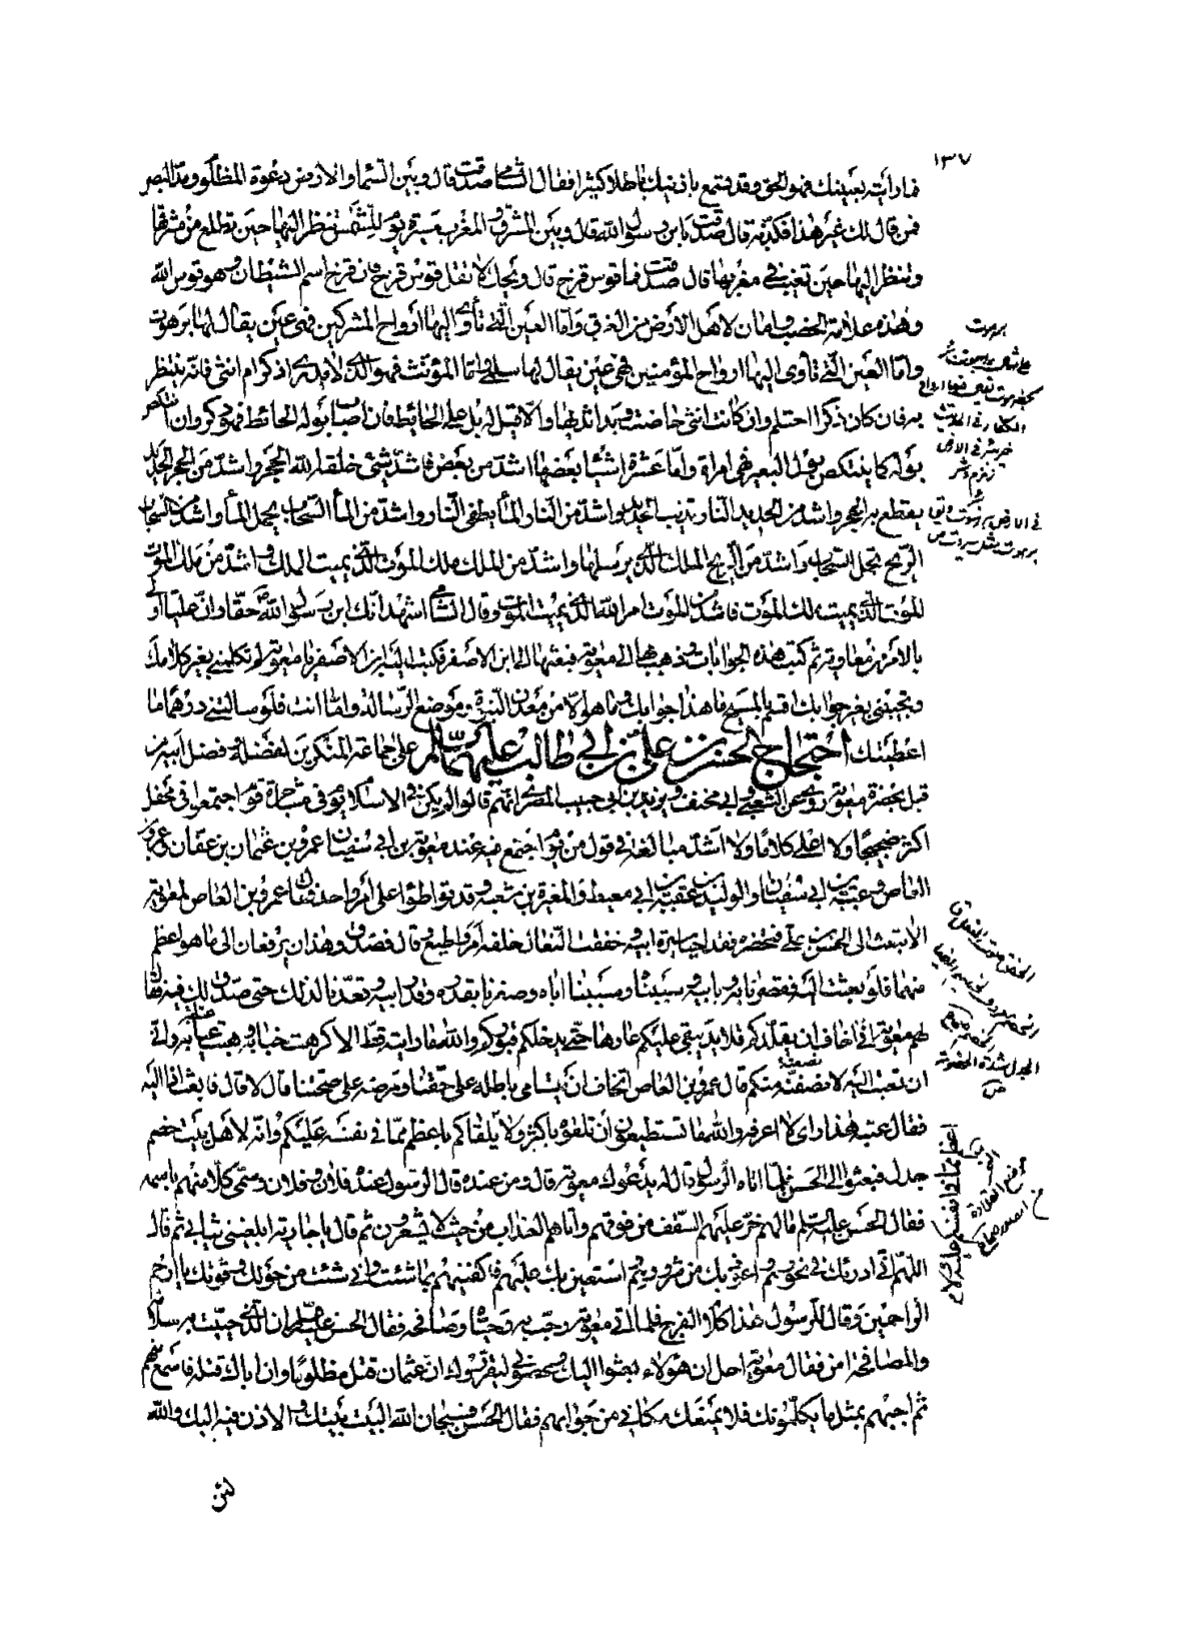 ١٣٧
فما رأيته بعينيك فهو الحق وقد تسمع باذنيك باطلا كثيرا فقال الشامي صدقت قال وبين السماء والارض دعوة المظلوم ومد البصر
فمن قال لك غير هذا فكذبه قال صدقت يابن رسول الله قال وبين المشرق والمغرب مسيرة يوم للشمس تنظر اليها حين تطلع من مشرقها
وتنظر اليها حين تغيب في مغربها قال صدقت فما قوس قزح قال ويحك لا تقل قوس قزح فان قزح اسم الشيطان وهو قوس الله
وهذه علامة الخصب وامان لاهل الارض من الغرق واما العين التي تأوي اليها ارواح المشركين فهي عين يقال لها برهوت
واما العين التي تأوى اليها ارواح المؤمنين فهي عين يقال لها سلمى واما المؤنث فهو الذي لا يدرى اذكر ام انثى فانه ينتظر
به فان كان ذكرا احتلم وان كانت انثى حاضت وبدا ثديها والا قيل له بل على الحائط فان اصاب بوله الحائط فهو ذكر وان انتكص
بوله كما ينتكص بول البعير فهي امرأة واما عشرة اشياء بعضها اشد من بعض فاشد شئ خلقه الله الحجر واشد من الحجر الحديد
يقطع به الحجر واشد من الحديد النار تذيب الحديد واشد من النار الماء يطفئ النار واشد من الماء السحاب يحمل الماء واشد من السحاب
الريح تحمل السحاب واشد من الريح الملك الذي يرسلها واشد من الملك ملك الموت الذي يميت الملك واشد من ملك الموت
الموت الذي يميت ملك الموت واشد من الموت امر الله الذي يميت الموت وقال الشامي اشهد انك ابن رسول الله حقا وان عليا اولى
بالامر من معاوية ثم كتب هذه الجوابات وذهب بها الى معوية فبعثها الى ابن الاصفر فكتب اليه ابن الاصفر يا معوية لم تكلمني بغير كلامك
وتجيبني بغير جوابك اقسم بالمسيح ما هذا جوابك وما هو الا من معدن النبوة وموضع الرسالة واما انت فلو سالتني درهما ما
اعطيتك احتجاج الحسن بن علي بن ابي طالب عليهما السلام على جماعة المنكرين لفضله وفضل ابيه من
قبل بحضرة معوية روي عن الشعبي وابي مخنف ويزيد بن ابي حبيب المصري انهم قالوا لم يكن في الاسلام يوم في مشاجرة قوم اجتمعوا في محفل
اكثر ضجيجا ولا اعلى كلاما ولا اشد مبالغة في قول من يوم اجتمع فيه عند معوية بن ابي سفين عمرو بن عثمان بن عفان وعمرو بن
العاص وعتبة بن ابي سفين والوليد بن عقبة بن ابي معيط والمغيرة بن شعبة وقد تواطؤا على امر واحد فقال عمرو بن العاص لمعوية
الا تبعث الى الحسن بن علي فتحضره فقد احيى سيرة ابيه وخفقت النعال خلفه امر فاطيع وقال فصدق وهذان يرفعان الى ما هو اعظم
منهما فلو بعثت اليه فقصرنا به وبابيه وسببناه وسببنا اباه وصغرنا بقدره وقدر ابيه وقعدنا لذلك حتى صدق لك فيه فقال
لهم معوية اني اخاف ان يقلدكم قلائد يبقى عليكم عارها حتى يدخلكم قبوركم والله ما رايته قط الا كرهت جنابه وهبت عتابه واني
ان بعثت اليه لانصفنه منكم قال عمرو بن العاص اتخاف ان يتسامى باطله على حقنا ومرضه على صحتنا قال لا قال فابعث اذا اليه
فقال عتبة هذا رأي لا اعرفه والله ما تستطيعون ان تلقوه باكثر ولا يلقاكم باعظم مما في نفسه عليكم وانه لاهل بيت خصم
جدل فبعثوا الى الحسن فلما اتاه الرسول قال له يدعوك معوية قال ومن عنده قال الرسول عنده فلان وفلان وسمى كلا منهم باسمه
فقال الحسن عليه السلم مالهم خر عليهم السقف من فوقهم واتاهم العذاب من حيث لا يشعرون ثم قال يا جارية ابلغيني ثيابي ثم قال
اللهم اني ادرئك في نحورهم واعوذ بك من شرورهم واستعين بك عليهم فاكفنيهم بما شئت واني شئت من حولك وقوتك يا ارحم
الراحمين وقال للرسول هذا كلام الفرج فلما اتى معوية رحب به وحياه وصافحه فقال الحسن عليه السلم ان الذي حييت به سلامة
والمصافحة امن فقال معوية اجل ان هؤلاء بعثوا اليك وعصوني ليقرروك ان عثمان قتل مظلوما وان اباك قتله فاسمع منهم
ثم اجبهم بمثل ما يكلمونك فلا يمنعك مكاني من جوابهم فقال الحسن فسبحان الله البيت بيتك والاذن فيه اليك والله
برهوت
زمزم
لئن